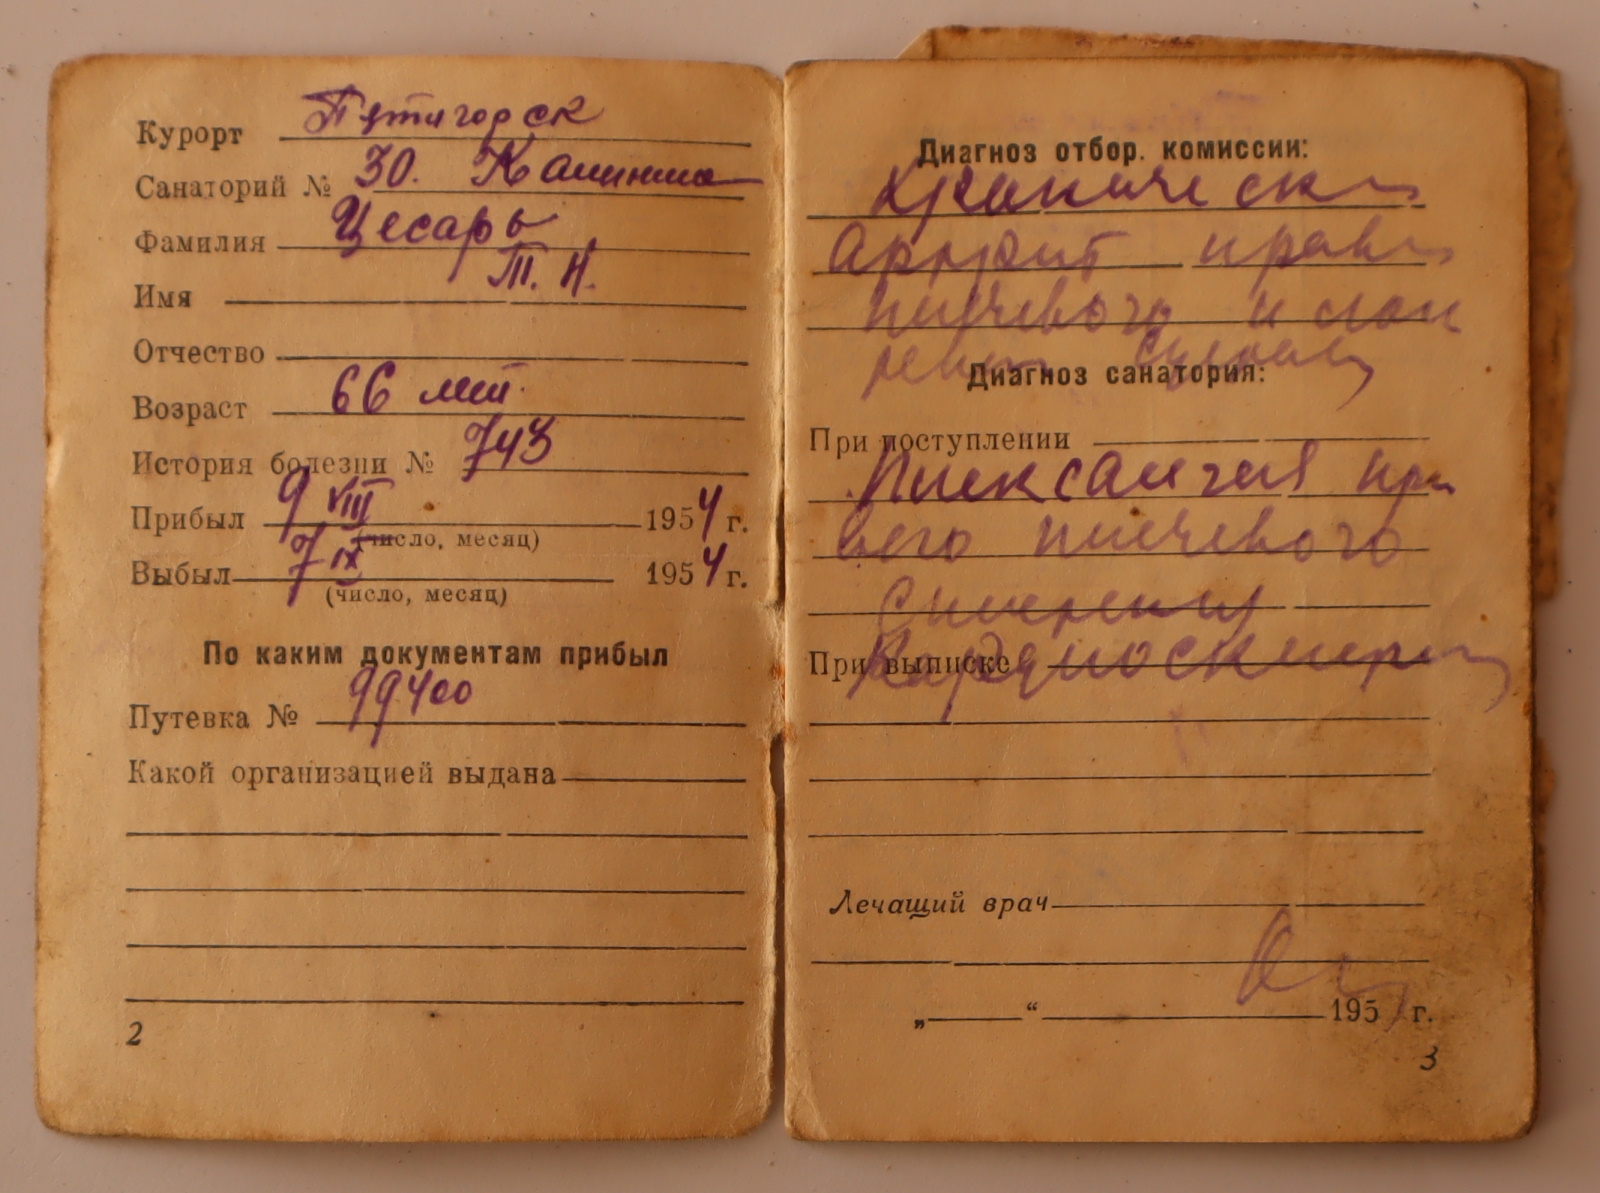 Курорт Пятигорск
Санаторий № 30. Калинина
Фамилия Цесарь
Т. Н.
Имя
Отчество
Возраст 66 лет.
История болезни № 743
Прибыл 9 VIII 1954 г.
(число, месяц)
Выбыл 7 IX 1954 г.
(число, месяц)
По каким документам прибыл
Путевка № 99400
Какой организацией выдана
2
Диагноз отбор. комиссии:
Хронически
Артрит прав
плечевого и лок
Диагноз санатория:
При поступлении
Плексалгия пра
вого плечевого
При выписке Кардиосклероз
Лечащий врач
„ “ 195 г.
3